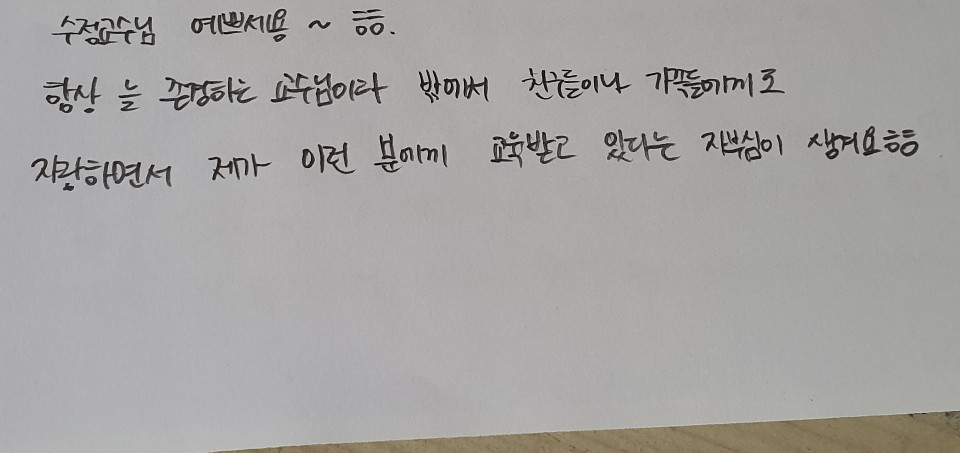 수정교수님 예쁘세용 ~ ㅎㅎ.
항상 늘 존경하는 교수님이라 밖에서 친구들이나 가족들에게도
자랑하면서 제가 이런 분에게 교육받고 있다는 자부심이 생겨요ㅎㅎ